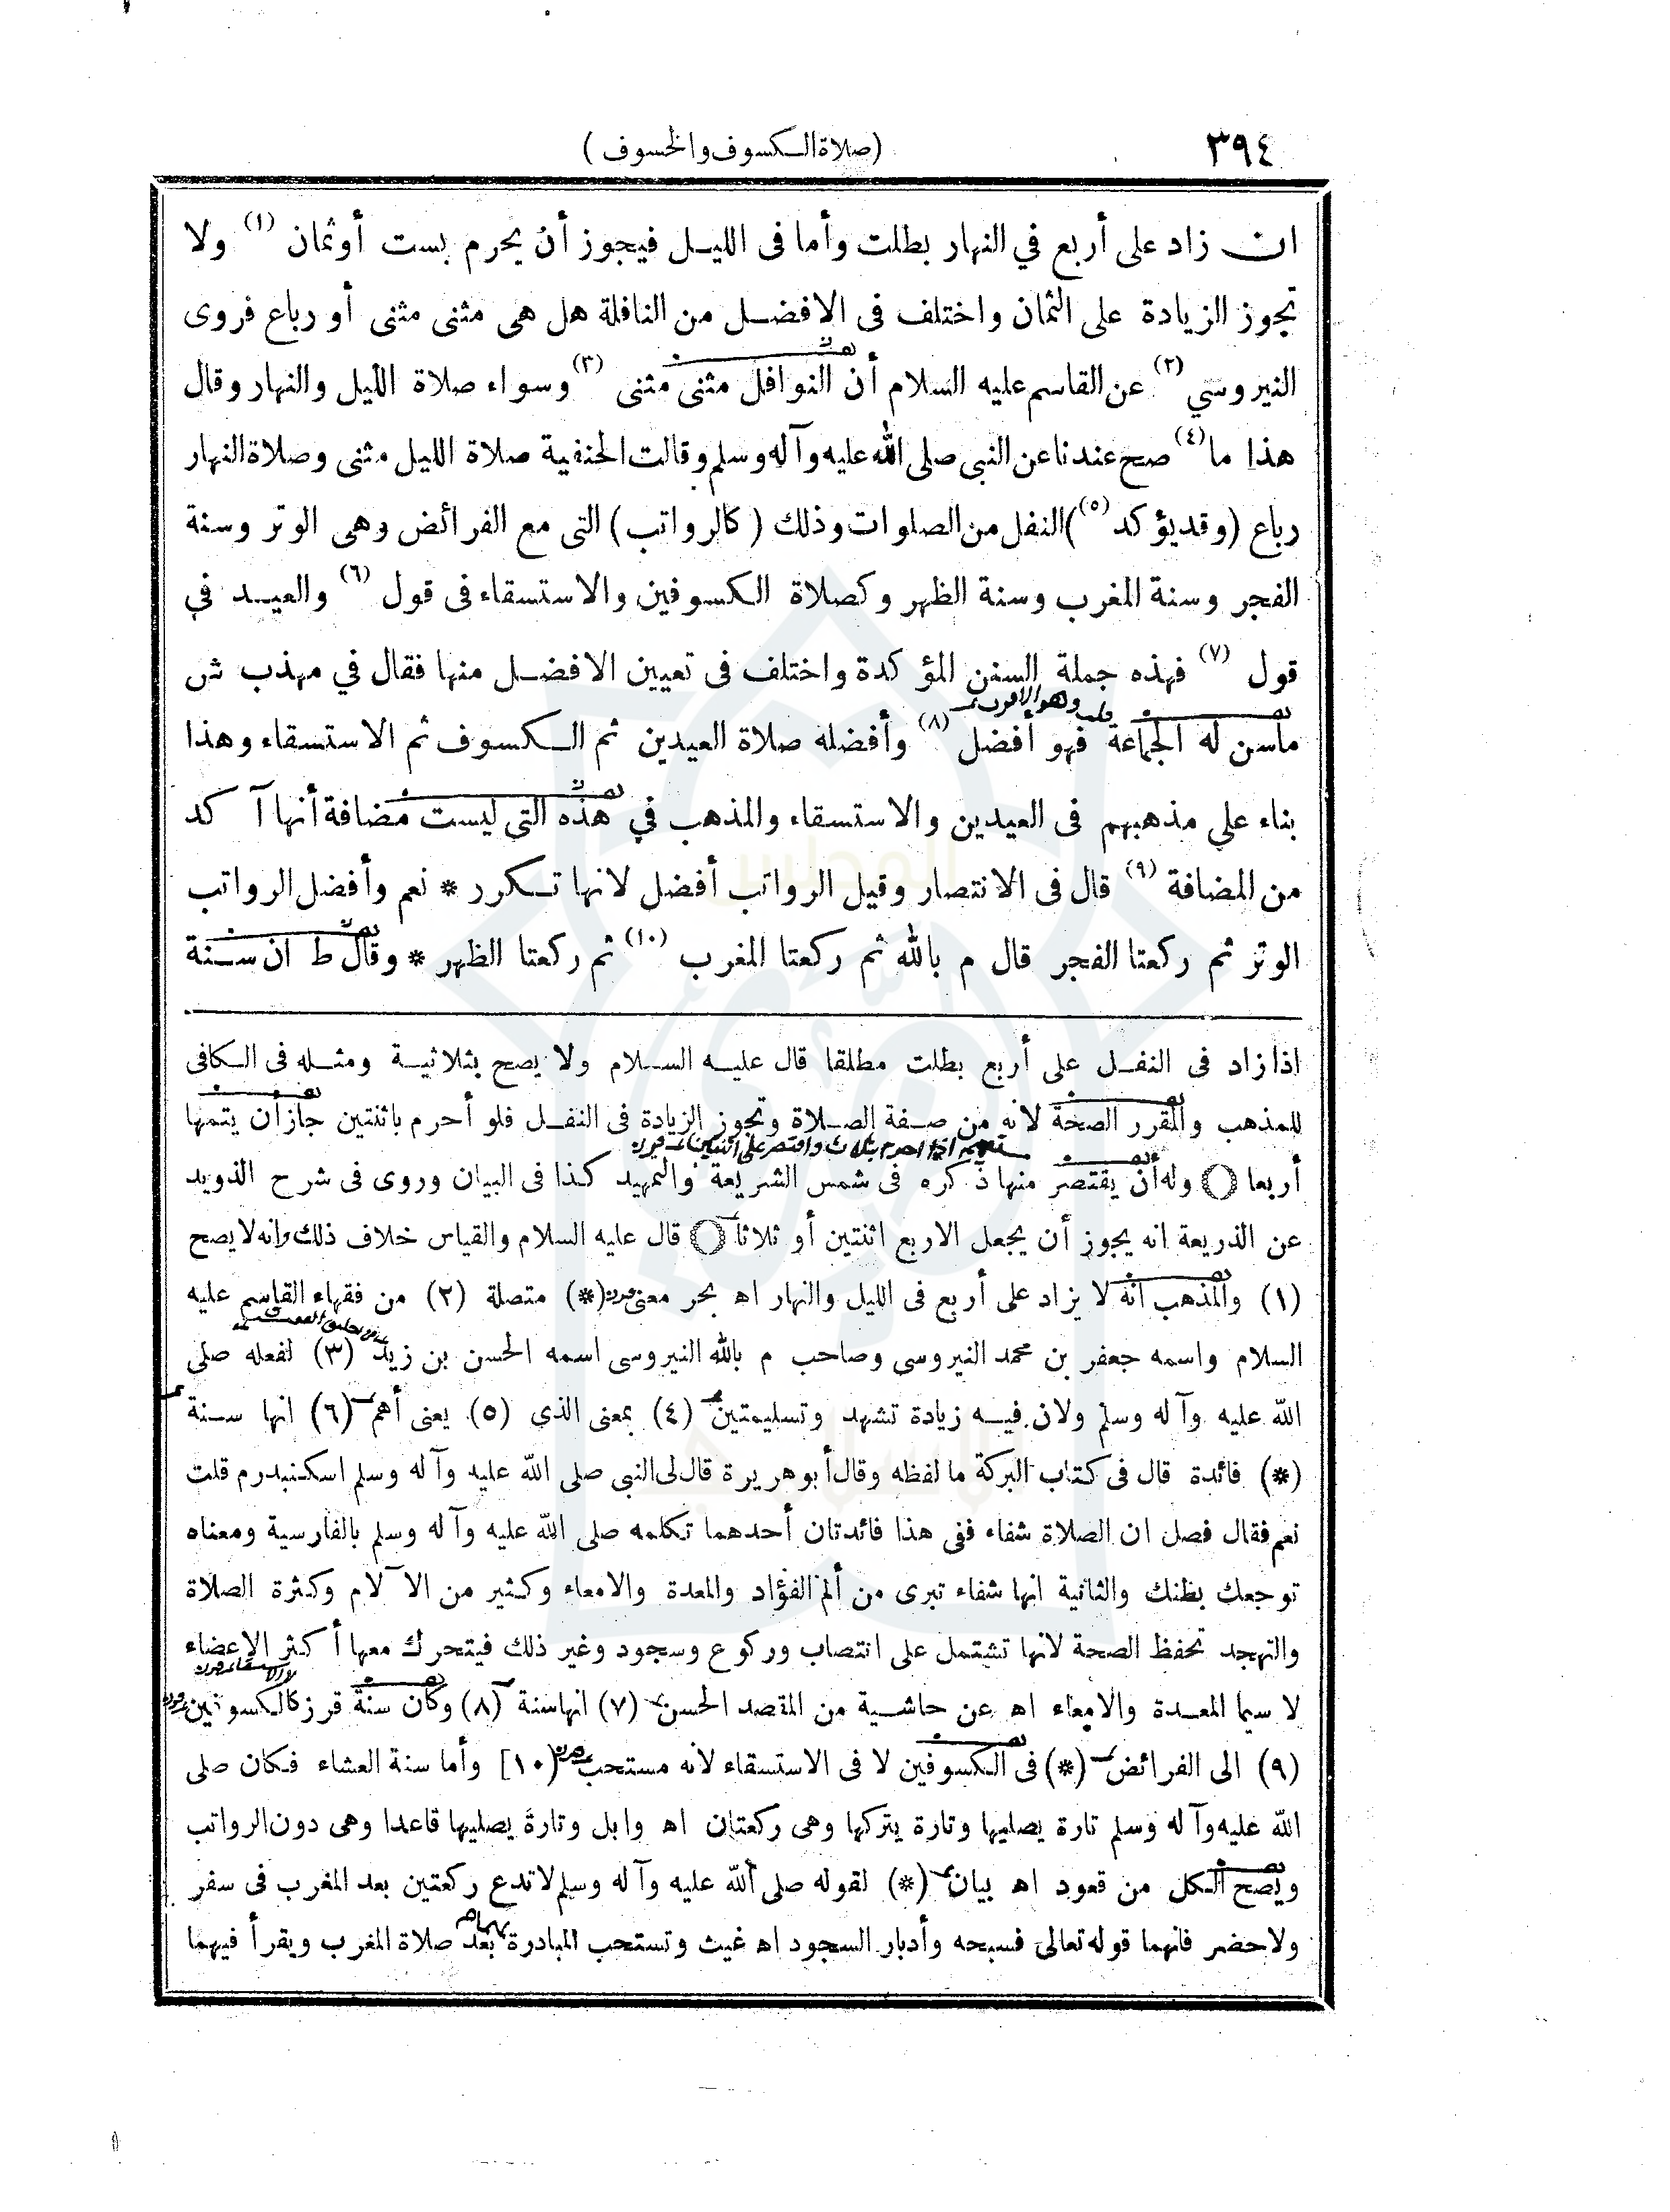 ٣٩٤
(صلاة الكسوف والخسوف)
ان زاد على أربع في النهار بطلت وأما فى الليل فيجوز أن يحرم بست أوثمان (١) ولا
تجوز الزيادة على الثمان واختلف فى الافضل من النافلة هل هى مثنى مثنى أو رباع فروى
النيروسي (٢) عن القاسم عليه السلام أن النوافل مثنى مثنى (٣) وسواء صلاة الليل والنهار وقال
هذا ما (٤) صح عندنا عن النبى صلى الله عليه وآله وسلم وقالت الحنفية صلاة الليل مثنى وصلاة النهار
رباع (وقد يؤكد (٥)) النفل من الصلوات وذلك (كالرواتب) التى مع الفرائض وهى الوتر وسنة
الفجر وسنة المغرب وسنة الظهر وكصلاة الكسوفين والاستسقاء فى قول (٦) والعيد في
قول (٧) فهذه جملة السنن المؤكدة واختلف فى تعيين الافضل منها فقال في مهذب ش
ماسن له الجماعة فهو أفضل (٨) وأفضله صلاة العيدين ثم الكسوف ثم الاستسقاء وهذا
بناء على مذهبهم فى العيدين والاستسقاء والمذهب في هذه التى ليست مضافة أنها آكد
من المضافة (٩) قال فى الانتصار وقيل الرواتب أفضل لانها تكرر * نعم وأفضل الرواتب
الوتر ثم ركعتا الفجر قال م بالله ثم ركعتا المغرب (١٠) ثم ركعتا الظهر * وقال ط ان سنة
اذا زاد فى النفل على أربع بطلت مطلقا قال عليه السلام ولا يصح بثلاثية ومثله فى الكافى
للمذهب والمقرر الصحة لانه من صفة الصلاة وتجوز الزيادة فى النفل فلو أحرم باثنتين جاز أن يتمها
أربعا وله أن يقتصر منها ذكره فى شمس الشريعة والتمهيد كذا فى البيان وروى فى شرح الذويد
عن الذريعة انه يجوز أن يجعل الاربع اثنتين أو ثلاثا قال عليه السلام والقياس خلاف ذلك وانه لا يصح
(١) والمذهب انه لا يزاد على أربع فى الليل والنهار اه بحر معنى (*) متصلة (٢) من فقهاء القاسم عليه
السلام واسمه جعفر بن محمد النيروسى وصاحب م بالله النيروسى اسمه الحسن بن زيد (٣) لفعله صلى
الله عليه وآله وسلم ولان فيه زيادة تشهد وتسليمتين (٤) بمعنى الذى (٥) يعنى أهم (٦) انها سنة
(*) فائدة قال فى كتاب البركة ما لفظه وقال أبو هريرة قال لى النبى صلى الله عليه وآله وسلم اسكنبدرم قلت
نعم فقال فصل ان الصلاة شفاء ففى هذا فائدتان أحدهما تكلمه صلى الله عليه وآله وسلم بالفارسية ومعناه
توجعك بطنك والثانية انها شفاء تبرى من ألم الفؤاد والمعدة والامعاء وكثير من الآلام وكثرة الصلاة
والتهجد تحفظ الصحة لانها تشتمل على انتصاب وركوع وسجود وغير ذلك فيتحرك معها أكثر الاعضاء
لا سيما المعدة والامعاء اه عن حاشية من المقصد الحسن (٧) انها سنة (٨) وكان سنة قرز كالكسوفين
(٩) الى الفرائض (*) فى الكسوفين لا فى الاستسقاء لانه مستحب (١٠] وأما سنة العشاء فكان صلى
الله عليه وآله وسلم تارة يصليها وتارة يتركها وهى ركعتان اه وابل وتارة يصليها قاعدا وهى دون الرواتب
ويصح الكل من قعود اه بيان (*) لقوله صلى الله عليه وآله وسلم لا تدع ركعتين بعد المغرب فى سفر
ولا حضر فانهما قوله تعالى فسبحه وأدبار السجود اه غيث وتستحب المبادرة بهما بعد صلاة المغرب ويقرأ فيهما